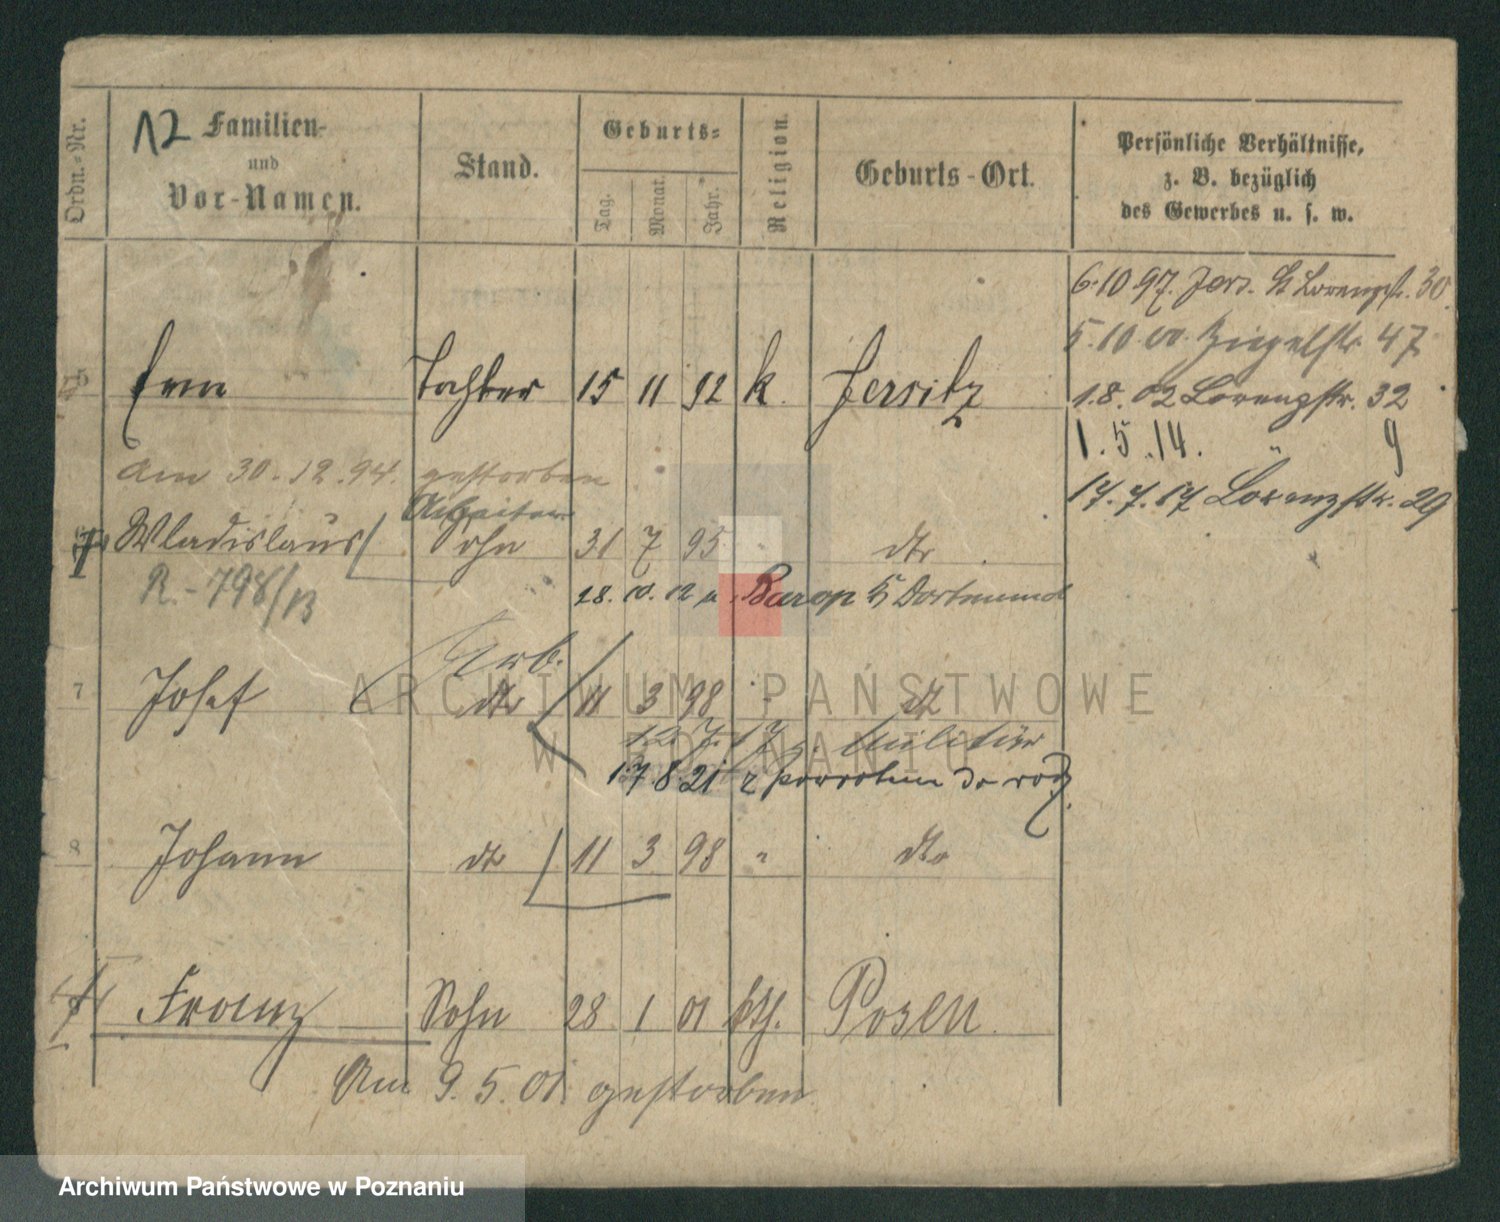 12
Ordn.-Nr. Familien- und Vor-Namen. Stand. Geburts- Tag. Monat. Jahr. Religion. Geburts-Ort. Persönliche Verhältnisse, z. B. bezüglich des Gewerbes u. s. w.
6.10 97. Jers. St Lorenzstr. 30.
5.10 00. Ziegelstr. 47
5 Tochter 15 11 92 k. Jersitz
1.8.02 Lorenzstr. 32
1.5.14. " 9
Am 30.12.94. gestorben
17.7.17 Lorenzstr. 29
Arbeiter
Wladislaus Sohn 31 7 95 " dto
R.-798/13
28.10.12 n. Barop b Dortmund
Arb.
7 Josef dto 11 3 98 " dto
7.17 z. Militär
17.8.21 z powrotem do rodz.
8 Johann dto 11 3 98 " dto
Franz Sohn 28 1 01 kth. Posen
Am 9.5.01. gestorben
ARCHIWUM PAŃSTWOWE
W POZNANIU
Archiwum Państwowe w Poznaniu